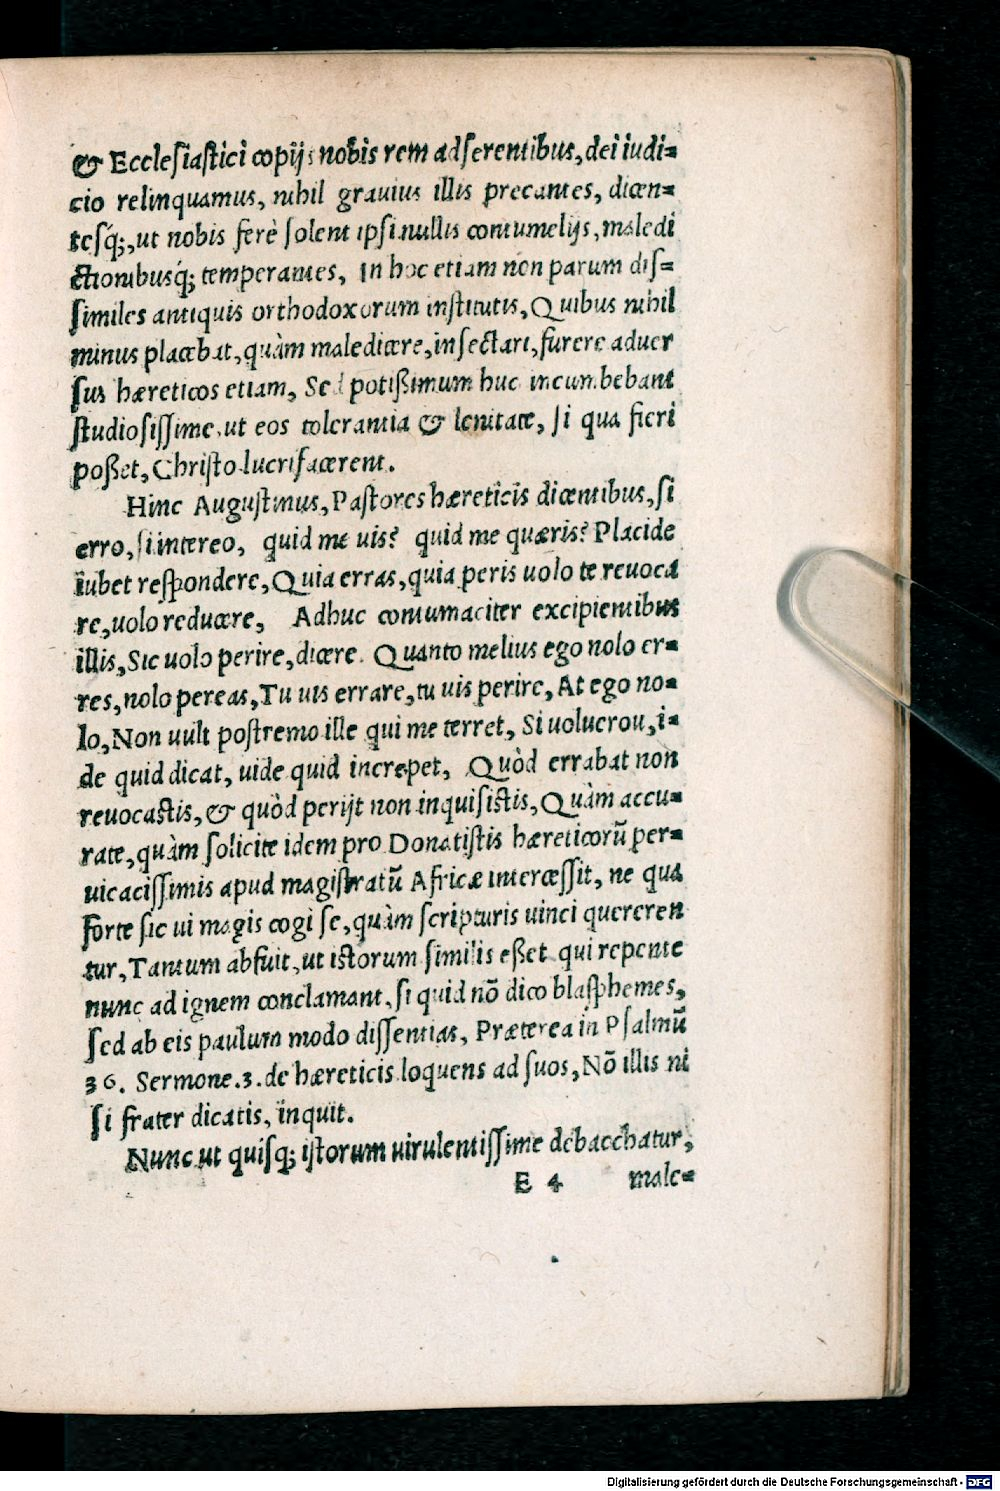 & Ecclesiastici copijs nobis rem adserentibus, dei iudi=
cio relinquamus, nihil grauius illis precantes, dicen=
tesq́;, ut nobis ferè solent ipsi. nullis contumelijs, maledi
ctionibusq́; temperantes, In hoc etiam non parum dis=
similes antiquis orthodoxorum institutis, Quibus nihil
minus placebat, quàm maledicere, insectari, furere aduer
sus hæreticos etiam, Sed potißimum huc incumbebant
studiosissime, ut eos tolerantia & lenitate, si qua fieri
poßet, Christo lucrifacerent.
Hinc Augustinus, Pastores hæreticis dicentibus, si
erro, si intereo, quid me uis? quid me quæris? Placide
iubet respondere, Quia erras, quia peris uolo te reuoca
re, uolo reducere, Adhuc contumaciter excipientibus
illis, Sic uolo perire, dicere. Quanto melius ego nolo er=
res, nolo pereas, Tu uis errare, tu uis perire, At ego no=
lo, Non uult postremo ille qui me terret, Si uoluerou, i=
de quid dicat, uide quid increpet, Quòd errabat non
reuocastis, & quòd perijt non inquisistis, Quàm accu=
rate, quàm solicite idem pro Donatistis hæreticorũ per=
uicacissimis apud magistratũ Africæ intercessit, ne qua
forte sic ui magis cogi se, quàm scripturis uinci quereren
tur, Tantum abfuit, ut istorum similis eßet qui repente
nunc ad ignem conclamant, si quid nõ dico blasphemes,
sed ab eis paulum modo dissentias, Præterea in Psalmũ
36. Sermone. 3. de hæreticis loquens ad suos, Nõ illis ni
si frater dicatis, inquit.
Nunc ut quisq; istorum uirulentissime debacchatur,
E 4 male=
Digitalisierung gefördert durch die Deutsche Forschungsgemeinschaft - DFG